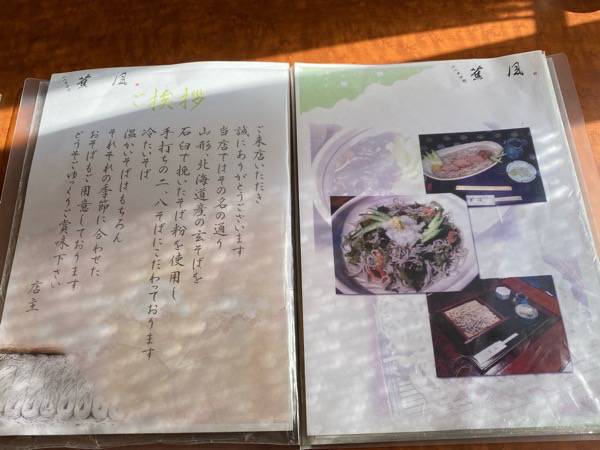 蕉風
ご挨拶
ご来店いただき
誠にありがとうございます
当店ではその名の通り
山形、北海道産の玄そばを
石臼で挽いたそば粉を使用し
手打ちの二、八そばにこだわっております
冷たいそば
温かいそばはもちろん
それぞれの季節に合わせた
おそばもご用意しております
どうぞごゆっくりご賞味下さい
店主
蕉風